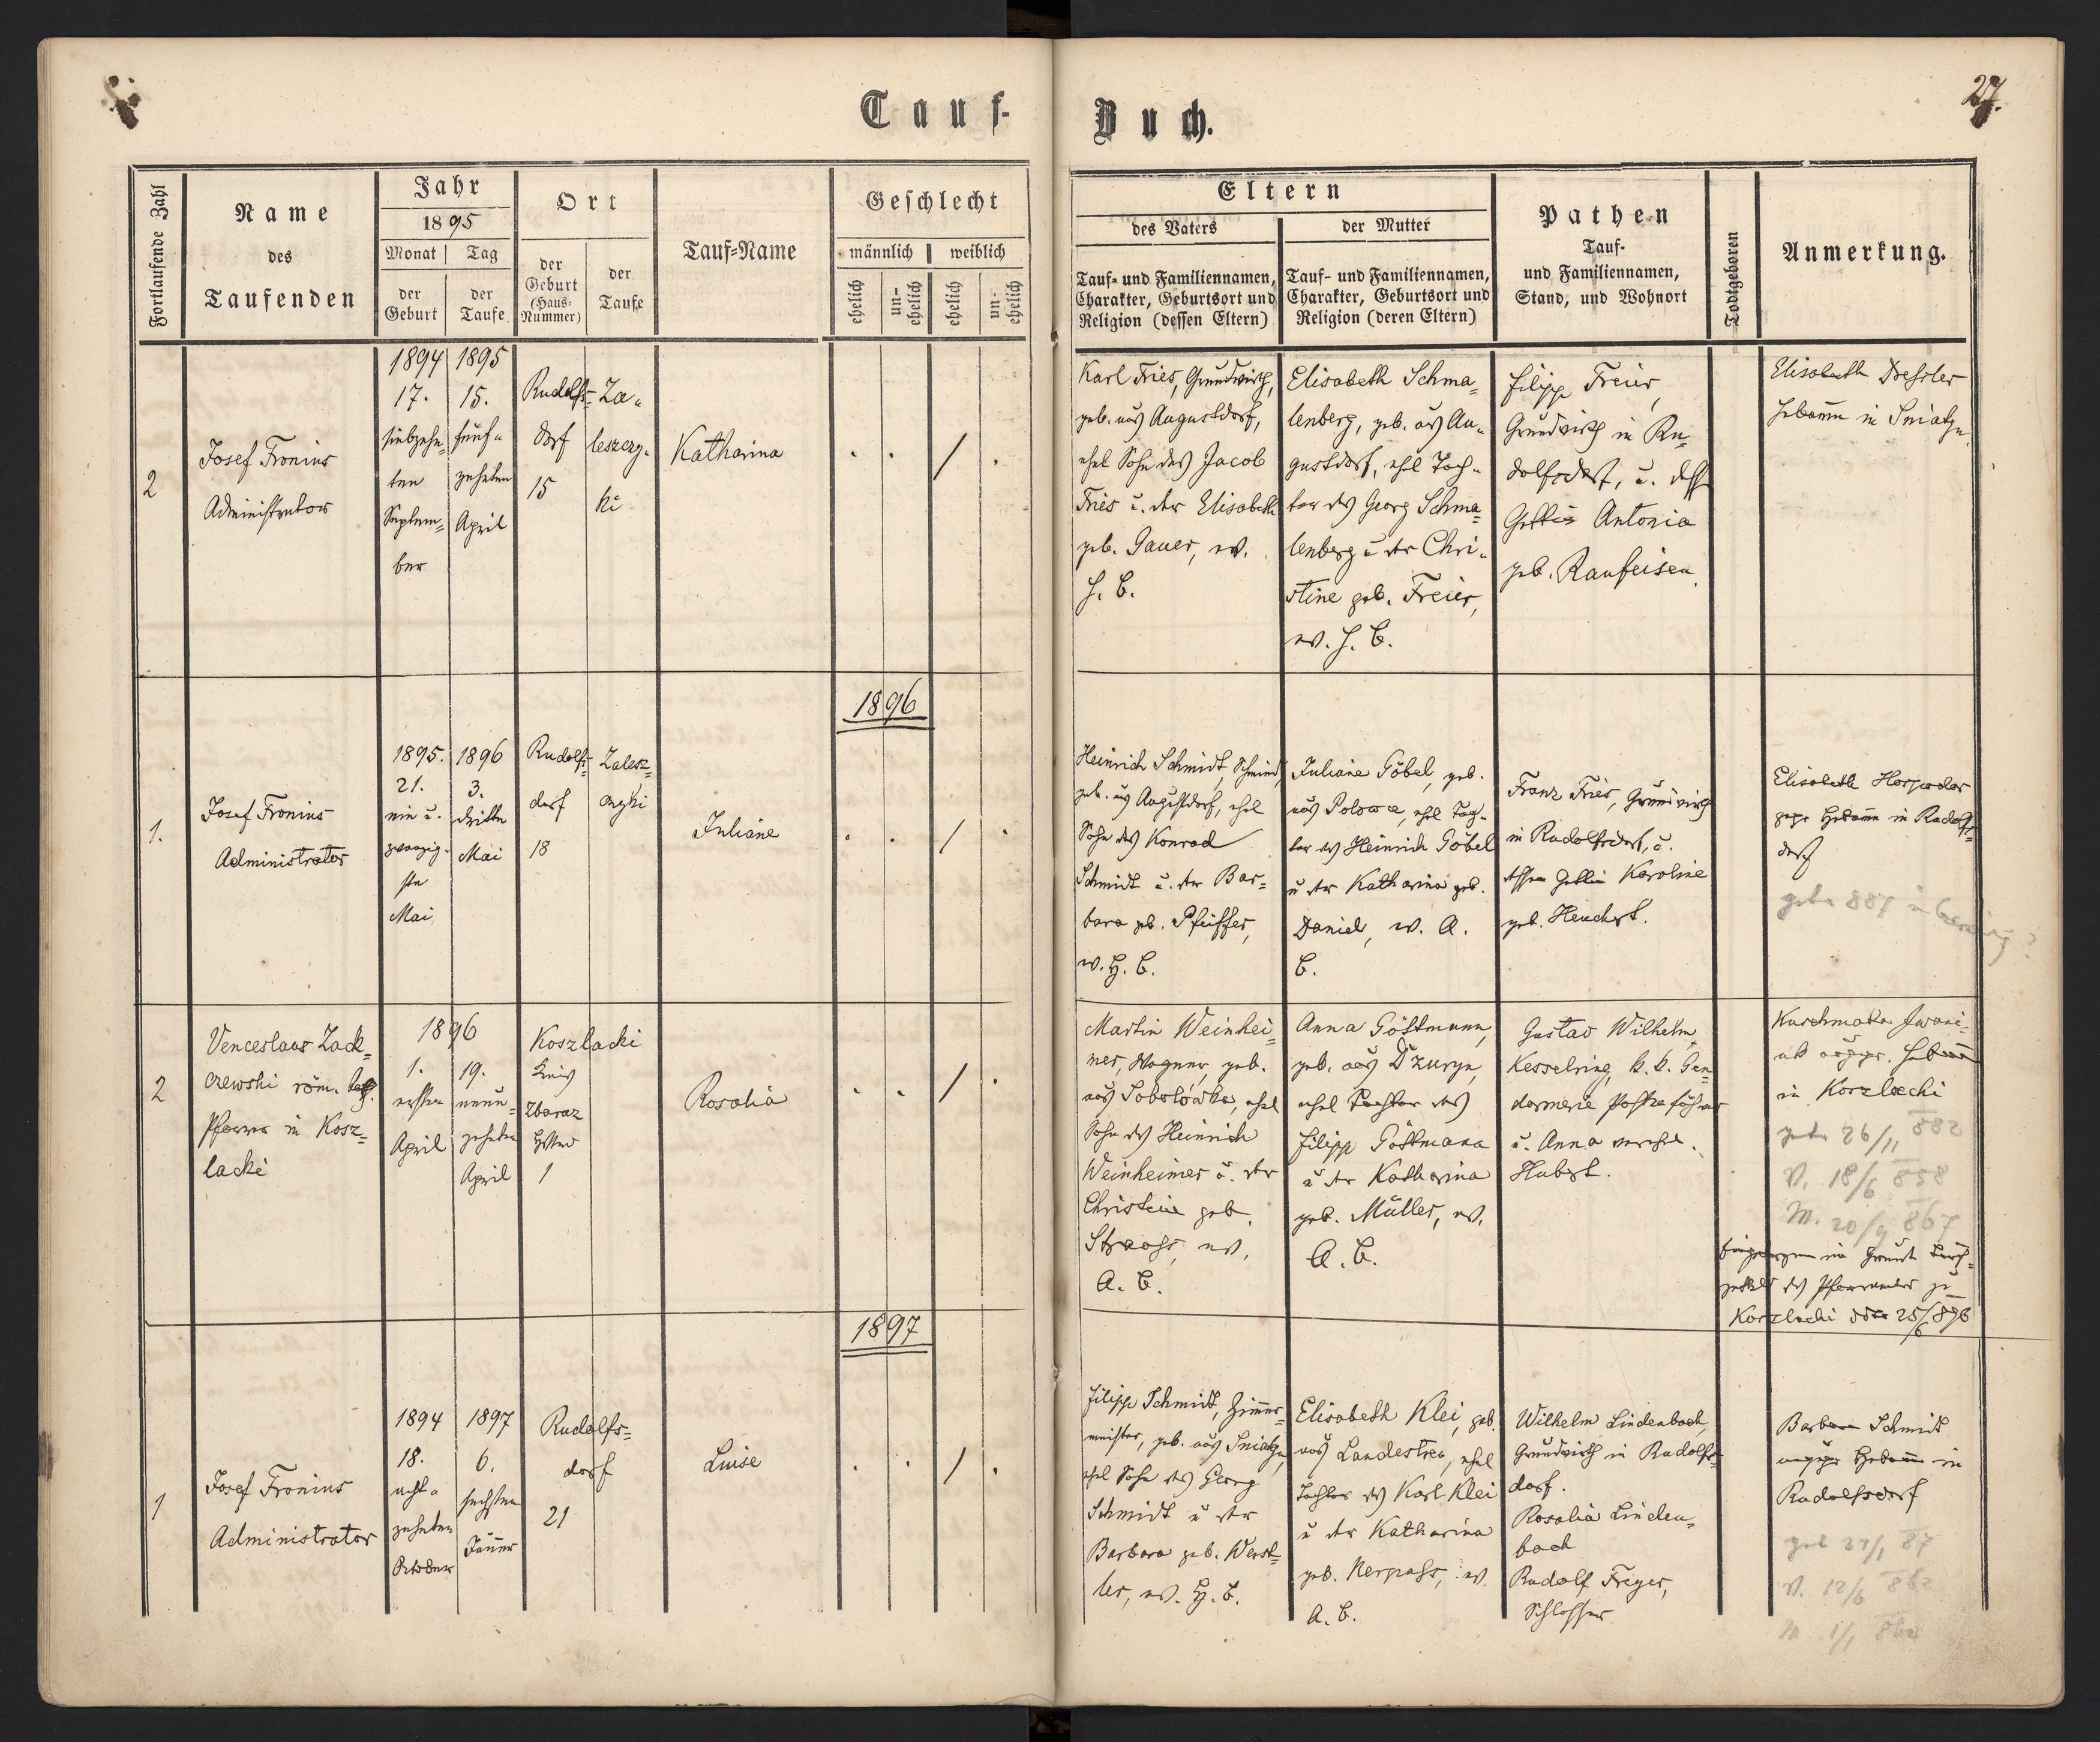 Tauf-
Buch.
27.
Fortlaufende Zahl
Name
des
Taufenden
Jahr
1895
Monat
Tag
der
Geburt
der
Taufe
Ort
der
Geburt
(Haus-
Nummer)
der
Taufe
Tauf-Name
Geschlecht
männlich
weiblich
ehelich
un-
ehelich
ehelich
un-
ehelich
Eltern
des Vaters
Tauf- und Familiennamen,
Charakter, Geburtsort und
Religion (dessen Eltern)
der Mutter
Tauf- und Familiennamen,
Charakter, Geburtsort und
Religion (deren Eltern)
Pathen
Tauf-
und Familiennamen,
Stand, und Wohnort
Todtgeboren
Anmerkung.
2
Josef Fronius
Administrator
1894
17.
siebzehn-
ten
Septem-
ber
1895
15.
fünf-
zehnten
April
Rudolfs-
dorf
15
Za-
leszczy-
ki
Katharina
Karl Fries, Grundwirth,
geb. aus Augustdorf,
ehel Sohn des Jacob
Fries u. der Elisabeth
geb. Gauer, ev.
H. B.
Elisabeth Schma-
lenberg, geb. aus Au-
gustdorf, ehel Toch-
ter des Georg Schma-
lenberg u der Chri-
stine geb. Freier,
ev. H. B.
Filipp Freier,
Grundwirth in Ru-
dolfsdorf, u.
Gattin Antonia
geb. Raufeisen.
Elisabeth Dressler
Hebamme in Sniatyn.
1896
1.
Josef Fronius
Administrator
1895.
21.
ein u.
zwanzig-
ste
Mai
1896
3.
dritte
Mai
Rudolfs-
dorf
18
Zalesz-
czyki
Juliane
Heinrich Schmidt, Schmied,
geb. aus Augustdorf, ehel
Sohn des Konrad
Schmidt u. der Bar-
bara geb. Pfeiffer,
ev. H. B.
Juliane Göbel, geb.
aus Polowce, ehel Toch-
ter des Heinrich Göbel
u der Katharina geb.
Daniel, ev. A.
B.
Franz Fries, Grundwirth
in Rudolfsdorf, u.
dessen Gattin Karoline
geb. Heuchert.
Elisabeth Hospodar
gepr Hebamme in Rudolfs-
dorf
geb. 887 in
2
Venceslaus Zack-
czewski röm. kath.
Pfarrer in Kosz-
lacki
1896
1.
ersten
April
19.
neun-
zehnten
April
Koszlacki
Kreis
Zbaraz
1
Rosalia
Martin Weinhei-
mer, Wagner, geb.
aus Sobolówka, ehel
Sohn des Heinrich
Weinheimer u. der
Christine geb.
Strauss, ev.
A. B.
Anna Göttmann,
geb. aus Dzuryn,
ehel Tochter des
Filipp Göttmann
u der Katharina
geb. Müller, ev.
A. B.
Gustav Wilhelm
Kesselring, k. k. Gen-
darmerie Postenführer
u. Anna verehel.
Hubert.
in Koszlacki
geb. 26/11 882
V. 18/6 858
M. 20/9 867
Eingetragen im Grunde
des Pfarramtes zu
Koszlacki ddto 25/6 896
1897
1
Josef Fronius
Administrator
1894
18.
acht-
zehnten
October
1897
6.
sechsten
Jänner
Rudolfs-
dorf
21
Luise
Filipp Schmidt, Zimmer-
meister, geb. aus Sniatyn,
ehel Sohn des Georg
Schmidt u der
Barbara geb. Werst-
ler, ev. H. B.
Elisabeth Klei, geb.
aus Landestreu, ehel
Tochter des Karl Klei
u der Katharina
geb. Kerpass, ev.
A. B.
Wilhelm Lindenbach,
Grundwirth in Rudolfs-
dorf.
Rosalia Linden-
bach
Rudolf Freyer,
Schlosser
Barbara Schmidt
ungepr Hebamme in
Rudolfsdorf
V. 12/6 862